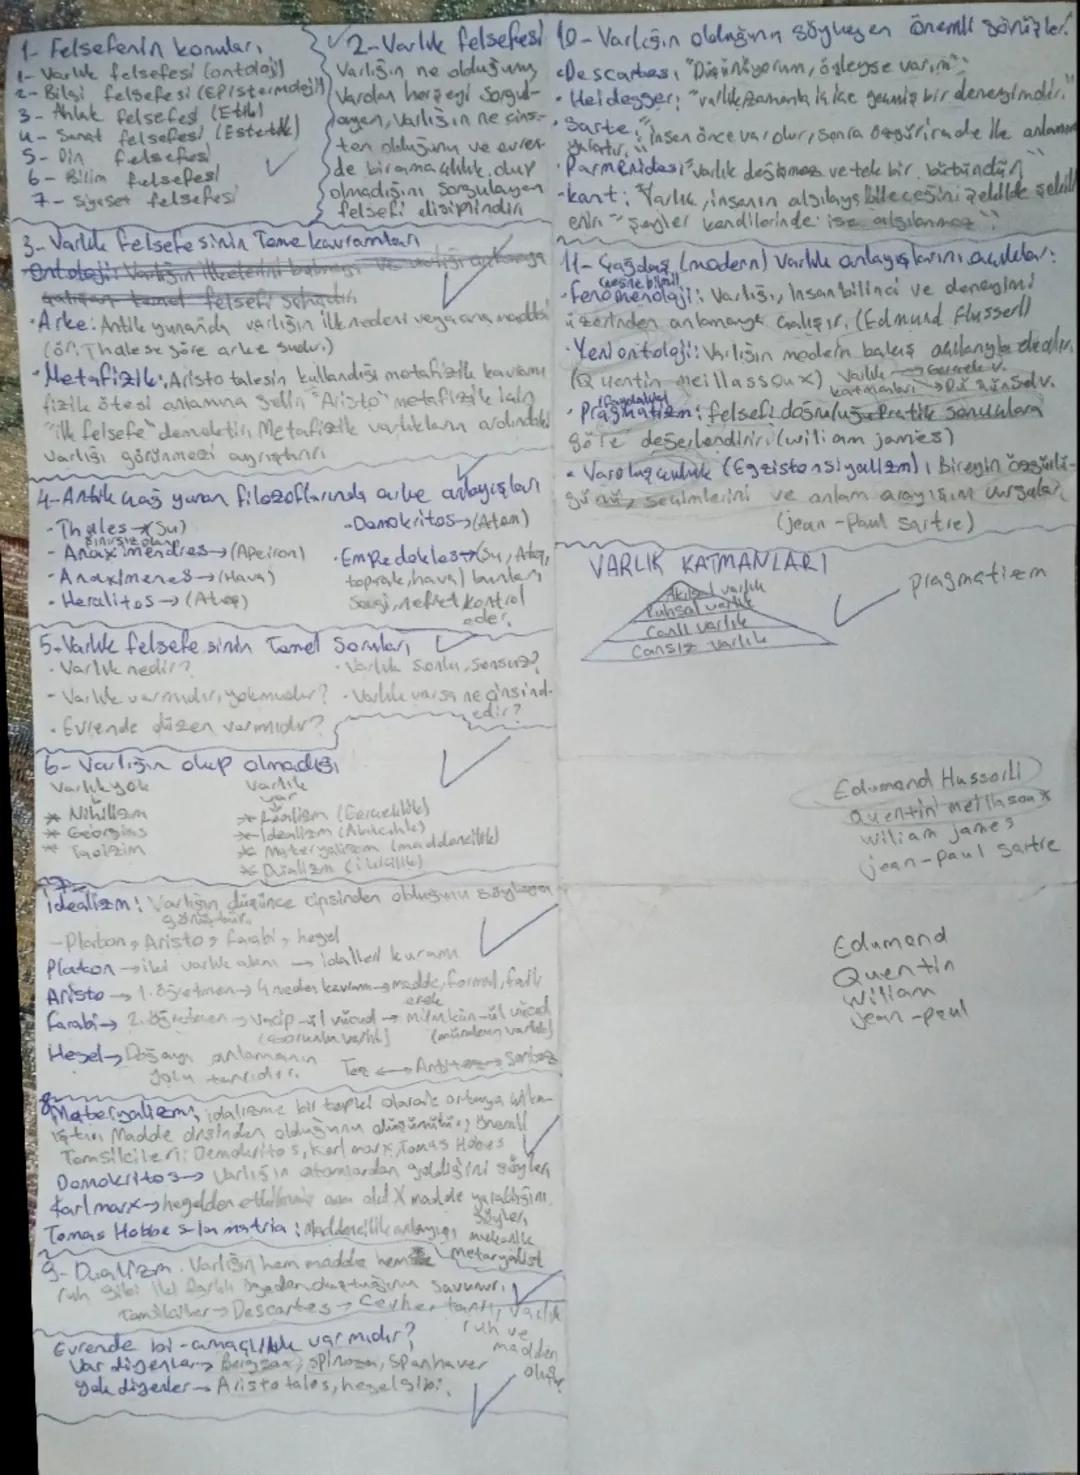 1- Felsefenin konuları
1- Varlık felsefesi (ontoloji)
2- Bilgi felsefesi (Epistermoloji)
3- Ahlak felsefesi (Etik)
4- Sanat felsefesi (Estetik)
5- Din felsefesi
6- Bilim felsefesi
7- Siyaset felsefesi
2- Varlık felsefesi
Varlığın ne olduğunu,
Vardan herşeyi sorgu-
layan, Varlığın ne cins-
ten olduğunu ve evren-
de bir amaçlılık olup
olmadığını sorgulayan
felsefi disiplindir
3- Varlık felsefesinin Temel kavramları
temel felsefi
Arke: Antik yunanda varlığın ilk nedeni veya ana maddesi
(ör: Thalese göre arke sudur.)
Metafizik: Aristotalesin kullandığı metafizik kavramı
fizik ötesi anlamına gelir "Aristo" metafizik için
"ilk felsefe" demektir. Metafizik varlıkların ardındaki
varlığı görünmezi
4- Antik çağ yunan filozoflarında arke anlayışları
- Thales → (Su)
sınırsız olan
- Anaximendres → (Apeiron)
- Anaximenes → (Hava)
- Heralitos → (Ateş)
- Demokritos → (Atom)
- Empedokles → (Su, Ateş,
toprak, hava) bunları
Sevgi, nefret kontrol
eder.
5- Varlık felsefesinin Temel Soruları
- Varlık nedir?
- Varlık varmıdır, yokmudur?
- Evrende düzen varmıdır?
- Varlık Sonlu, Sonsuz?
- Varlık varsa ne cinsind-
edir?
6- Varlığın olup olmadığı
Varlık yok
* Nihilizm
* Georgias
* Taoizim
Varlık
var
* Realizm (Gerçeklik)
* Idealizm
* Materyalizm (maddencilik)
* Dualizm (ikicilik)
7-
idealizm: Varlığın düşünce cinsinden olduğunu söyleyen
görüştür.
- Platon, Aristo, farabi, hegel
Platon → iki varlık alanı → idalleri kuramı
Aristo → 1. öğretmen → 4 neden kavramı → madde, formal, fail
erek
Farabi → 2. öğretmen → Vacip-ül vücud → mümkün-ül vücud
(zorunlu varlık) (mümkün varlık)
Hegel → Doğayı anlamanın
yolu tanrıdır. Tez ↔ Antitez → Sentez
8- Materyalizm: idalizme bir tepki olarak ortaya çıkm-
ıştır. Madde cinsinden olduğunu düşünülür, önemli
Temsilcileri: Demokritos, Karl marx, Tomas Hobes
Demokritos → Varlığın atomlardan geldiğini söyler
Karl marx → hegelden ama madde yarattığını
söyler.
Tomas Hobbes → la matria: Maddecilik anlayışı mekanik
metaryalist
9- Dualizm. Varlığın hem madde hemde
ruh gibi iki farklı savunur.
Temsilciler → Descartes → Cevher varlık
ruh ve
madden
oluşur
Evrende bi-amaçlılık varmıdır?
Var diyenler → Bergson, Spinoza, Spanhaver
Yok diyenler → Aristotales, hegel gibi.
10- Varlığın olduğunu söyleyen önemli görüşler.
- Descartes: "Düşünüyorum, öyleyse varım"
- Heidegger: "varlık, zamanla iç içe geçmiş bir deneyimdir."
- Sarte: "insan önce var olur, sonra özgür irade ile anlam
yaratır."
- Parmenides: "varlık değişmez ve tek bir bütündür"
- kant: "Varlık, insanın algılayabileceğini şekilde şekil
enir" şeyler kendilerinde ise algılanmaz"
11- Çağdaş (modern) varlık anlayışlarını açıklar:
- fenomenoloji: Varlığı, insan bilinci ve deneyimi
üzerinden anlamaya çalışır. (Edmund Husserl)
- Yeni ontoloji: Varlığın modern bakış
(Quentin meillassoux) Varlık → Gerçek v.
katmanları → Düşünsel v.
(faydalılık)
- Pragmatizm: felsefi doğruluğu pratik sonuclara
göre değerlendirir (wiliam james)
- Varoluşculuk (Egzistansiyalizm): Bireyin özgürlü-
günü, seçimlerini ve anlam arayışını vurgular
(jean-Paul Sartre)
VARLIK KATMANLARI
Akılsal varlık
Ruhsal varlık
Canlı varlık
Cansız varlık
pragmatizm
Edumond Husserli
Quentin meillasoux
wiliam james
jean-paul sartre
Edumond
Quentin
wiliam
Jean-paul